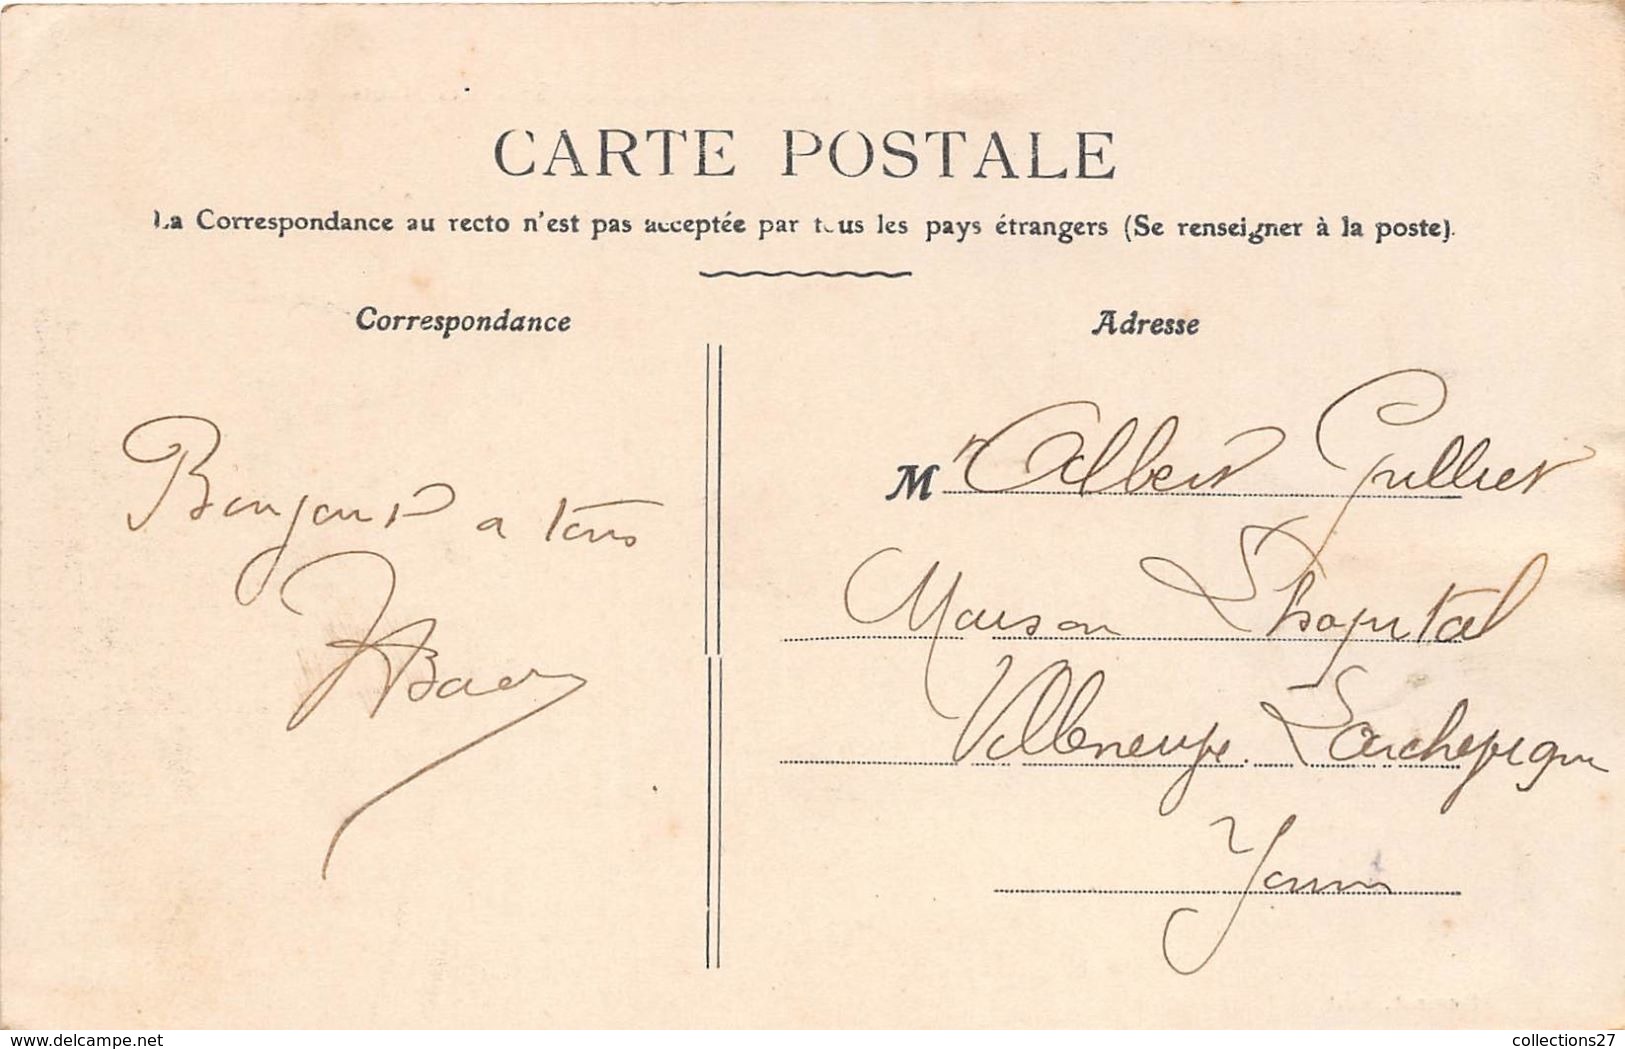 CARTE POSTALE
La Correspondance au recto n'est pas acceptée par tous les pays étrangers (Se renseigner à la poste).
Correspondance
Adresse
Bonjour a tous
Mr Albert
Maison Lhopital
Villeneuve Larchevêque
Yonne
delcampe.net
collections27